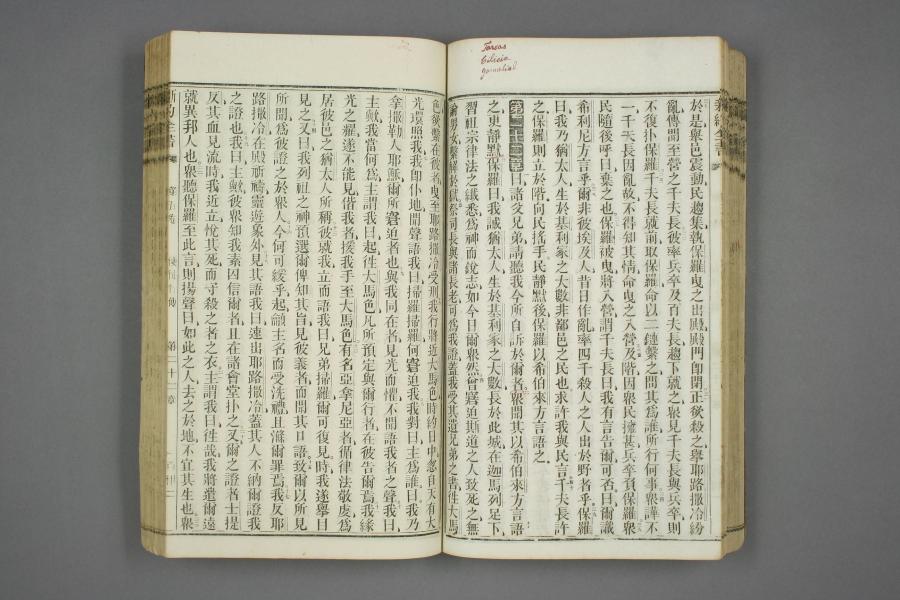 Tarsus
Cilicia
Gamaliel
於是舉邑震動民趨集執保羅曳之出殿殿門卽閉正欲殺之舉耶路撒冷紛
亂傳聞至營之千夫長彼率兵卒及百夫長趨下就之衆見千夫長與兵卒則
不復扑保羅千夫長就前取保羅命以二鏈繫之問其爲誰所行何事衆譁不
一千夫長因亂故不得知其情命曳之入營及階因衆民擁甚兵卒負保羅衆
民隨後呼曰棄之也保羅被曳將入營謂千夫長曰我有言告爾可否曰爾識
希利尼方言乎爾非彼埃及人昔日作亂率四千殺人之人出於野者乎保羅
曰我乃猶太人生於基利家之大數非鄙邑之民也求許我與民言千夫長許
之保羅則立於階向民搖手民靜默後保羅以希伯來方言語之
第二十二章曰諸父兄弟請聽我今所自訴於爾者衆聞其以希伯來方言語
之更靜默保羅曰我誠猶太人生於基利家之大數長於此城在迦馬列足下
習祖宗律法之緘悉爲神而銳志如今日爾衆然曾窘迫斯道之人致死之無
論男女繫解於獄祭司長與諸長老可爲我證蓋我受其遺兄弟之書往大馬
色欲繫在彼者曳至耶路撒冷受刑我行將近大馬色時約日中忽自天有大
光環照我我卽仆地聞聲語我曰掃羅掃羅何窘迫我我對曰主爲誰曰我乃
拿撒勒人耶穌爾所窘迫者也與我同在者見光而懼不聞語我者之聲我曰
主歟我當何爲主謂我曰起往大馬色凡所預定與爾行者在彼告爾焉我緣
光之耀遂不能見偕我者援我手至大馬色有名亞拿尼亞者循律法敬虔爲
居彼邑之猶太人所稱彼就我立而語我曰兄弟掃羅爾可復見時我遂舉目
見之又曰我列祖之神預選爾俾知其旨見彼義者而聞其口語致爾以所見
所聞爲彼證之於衆人今何可緩乎起籲主名而受洗禮且滌爾罪焉我反耶
路撒冷在殿祈禱靈遊象外見其語我曰速出耶路撒冷蓋其人不納爾證我
之證也我曰主歟彼衆知我素囚信爾者且在諸會堂扑之又爾之證者士提
反其血見流時我近立悅其死而守殺之者之衣主謂我曰往哉我將遣爾遠
就異邦人也衆聽保羅至此言則揚聲曰如此之人去之於地不宜其生也衆
新約全書
第二十二章